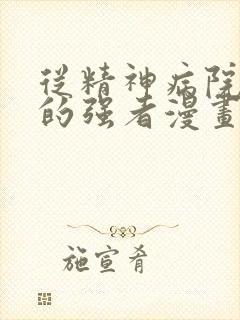 從精神病院
的强者漫畫
施宣肴